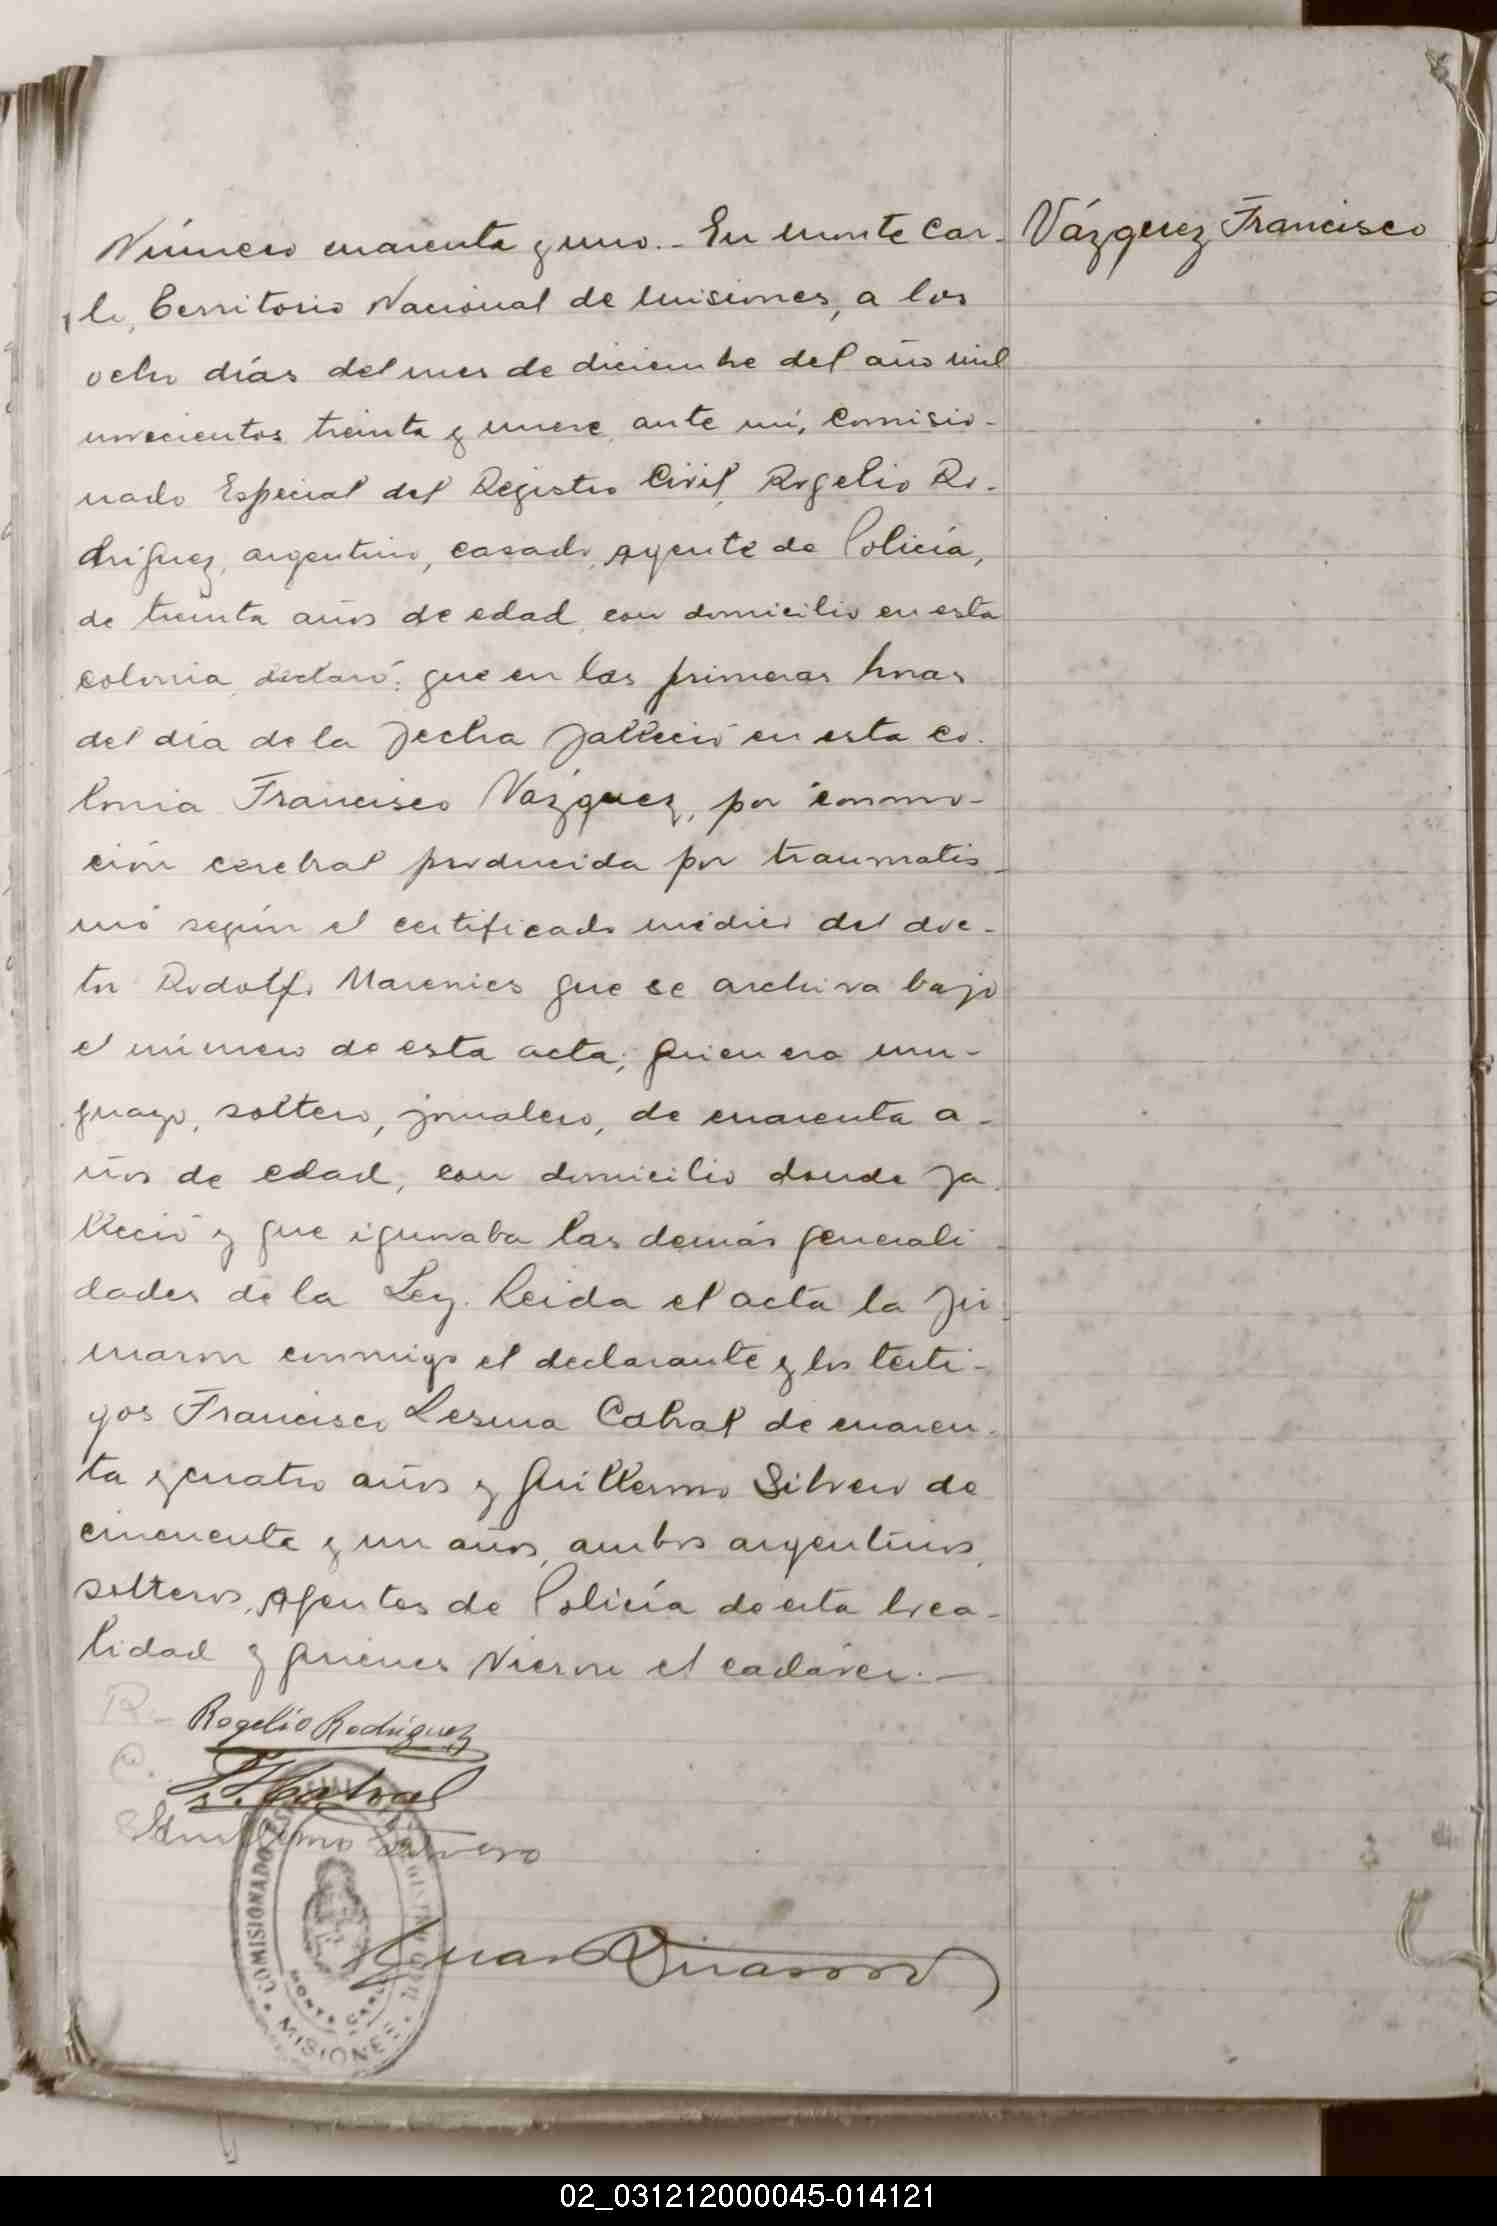 Número cuarenta y uno.- En Monte Car-
Vázquez Francisco
lo, Territorio Nacional de Misiones, a los
ocho días del mes de diciembre del año mil
novecientos treinta y nueve, ante mí, Comisio-
nado Especial del Registro Civil, Rogelio Ro-
dríguez, argentino, casado, Agente de Policía,
de treinta años de edad, con domicilio en esta
colonia, declaró: que en las primeras horas
del día de la fecha falleció en esta co-
lonia Francisco Vázquez, por conmo-
ción cerebral producida por traumatis-
mo según el certificado médico del doc-
tor Rodolfo que se archiva bajo
el número de esta acta; quien era uru-
guayo, soltero, jornalero, de cuarenta a-
ños de edad, con domicilio donde fa-
lleció y que ignoraba las demás generali-
dades de la Ley. Leida el acta la fir-
maron conmigo el declarante y los testi-
gos Francisco Lesma Cabral de cuaren-
ta y cuatro años y Guillermo Silvero de
cincuenta y un años, ambos argentinos,
solteros, Agentes de Policía de esta loca-
lidad y quienes vieron el cadáver.-
Rogelio Rodríguez
F. L. Cabral
Guillermo Silvero
COMISIONADO ESPECIAL REGISTRO CIVIL
MONTE CARLO
MISIONES
Juan
02_031212000045-014121